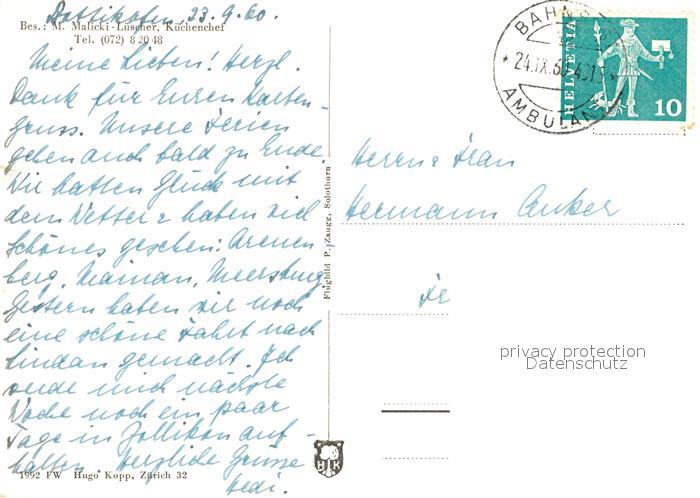 Bottikofen, 23.9.60.
Bes.: M. Malicki-Lüscher, Küchenchef
Tel. (072) 8 20 48
Meine Lieben! Herzl.
Dank für Euren Karten-
gruss. Unsere Ferien
gehen auch bald zu Ende.
Wir hatten Glück mit
dem Wetter & haben viel
schönes gesehen: Arenen
berg, Mainau, Meersburg,
Gestern haben wir noch
eine schöne Fahrt nach
Lindau gemacht. Ich
werde mich nächste
Woche noch ein paar
Tage in Zollikon auf-
halten. Herzliche Grüsse
Hedi.
1992 FW Hugo Kopp, Zürich 32
Flugbild P. Zaugg, Solothurn
HK
BAHN
24.IX.60
AMBULAN
HELVETIA
10
Herrn & Frau
Hermann Anker
Fe
privacy protection
Datenschutz